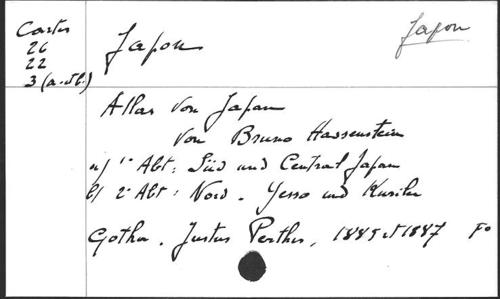 Cartes
26
22
3 (a et b.)
Japon
Japon
Atlas von Japan
von Bruno Hassenstein
a/ 1e Abt: Süd und Central Japan
b/ 2e Abt: Nord. Yesso und Kurilen
Gotha. Justus Perthes, 1885 et 1887 Fo